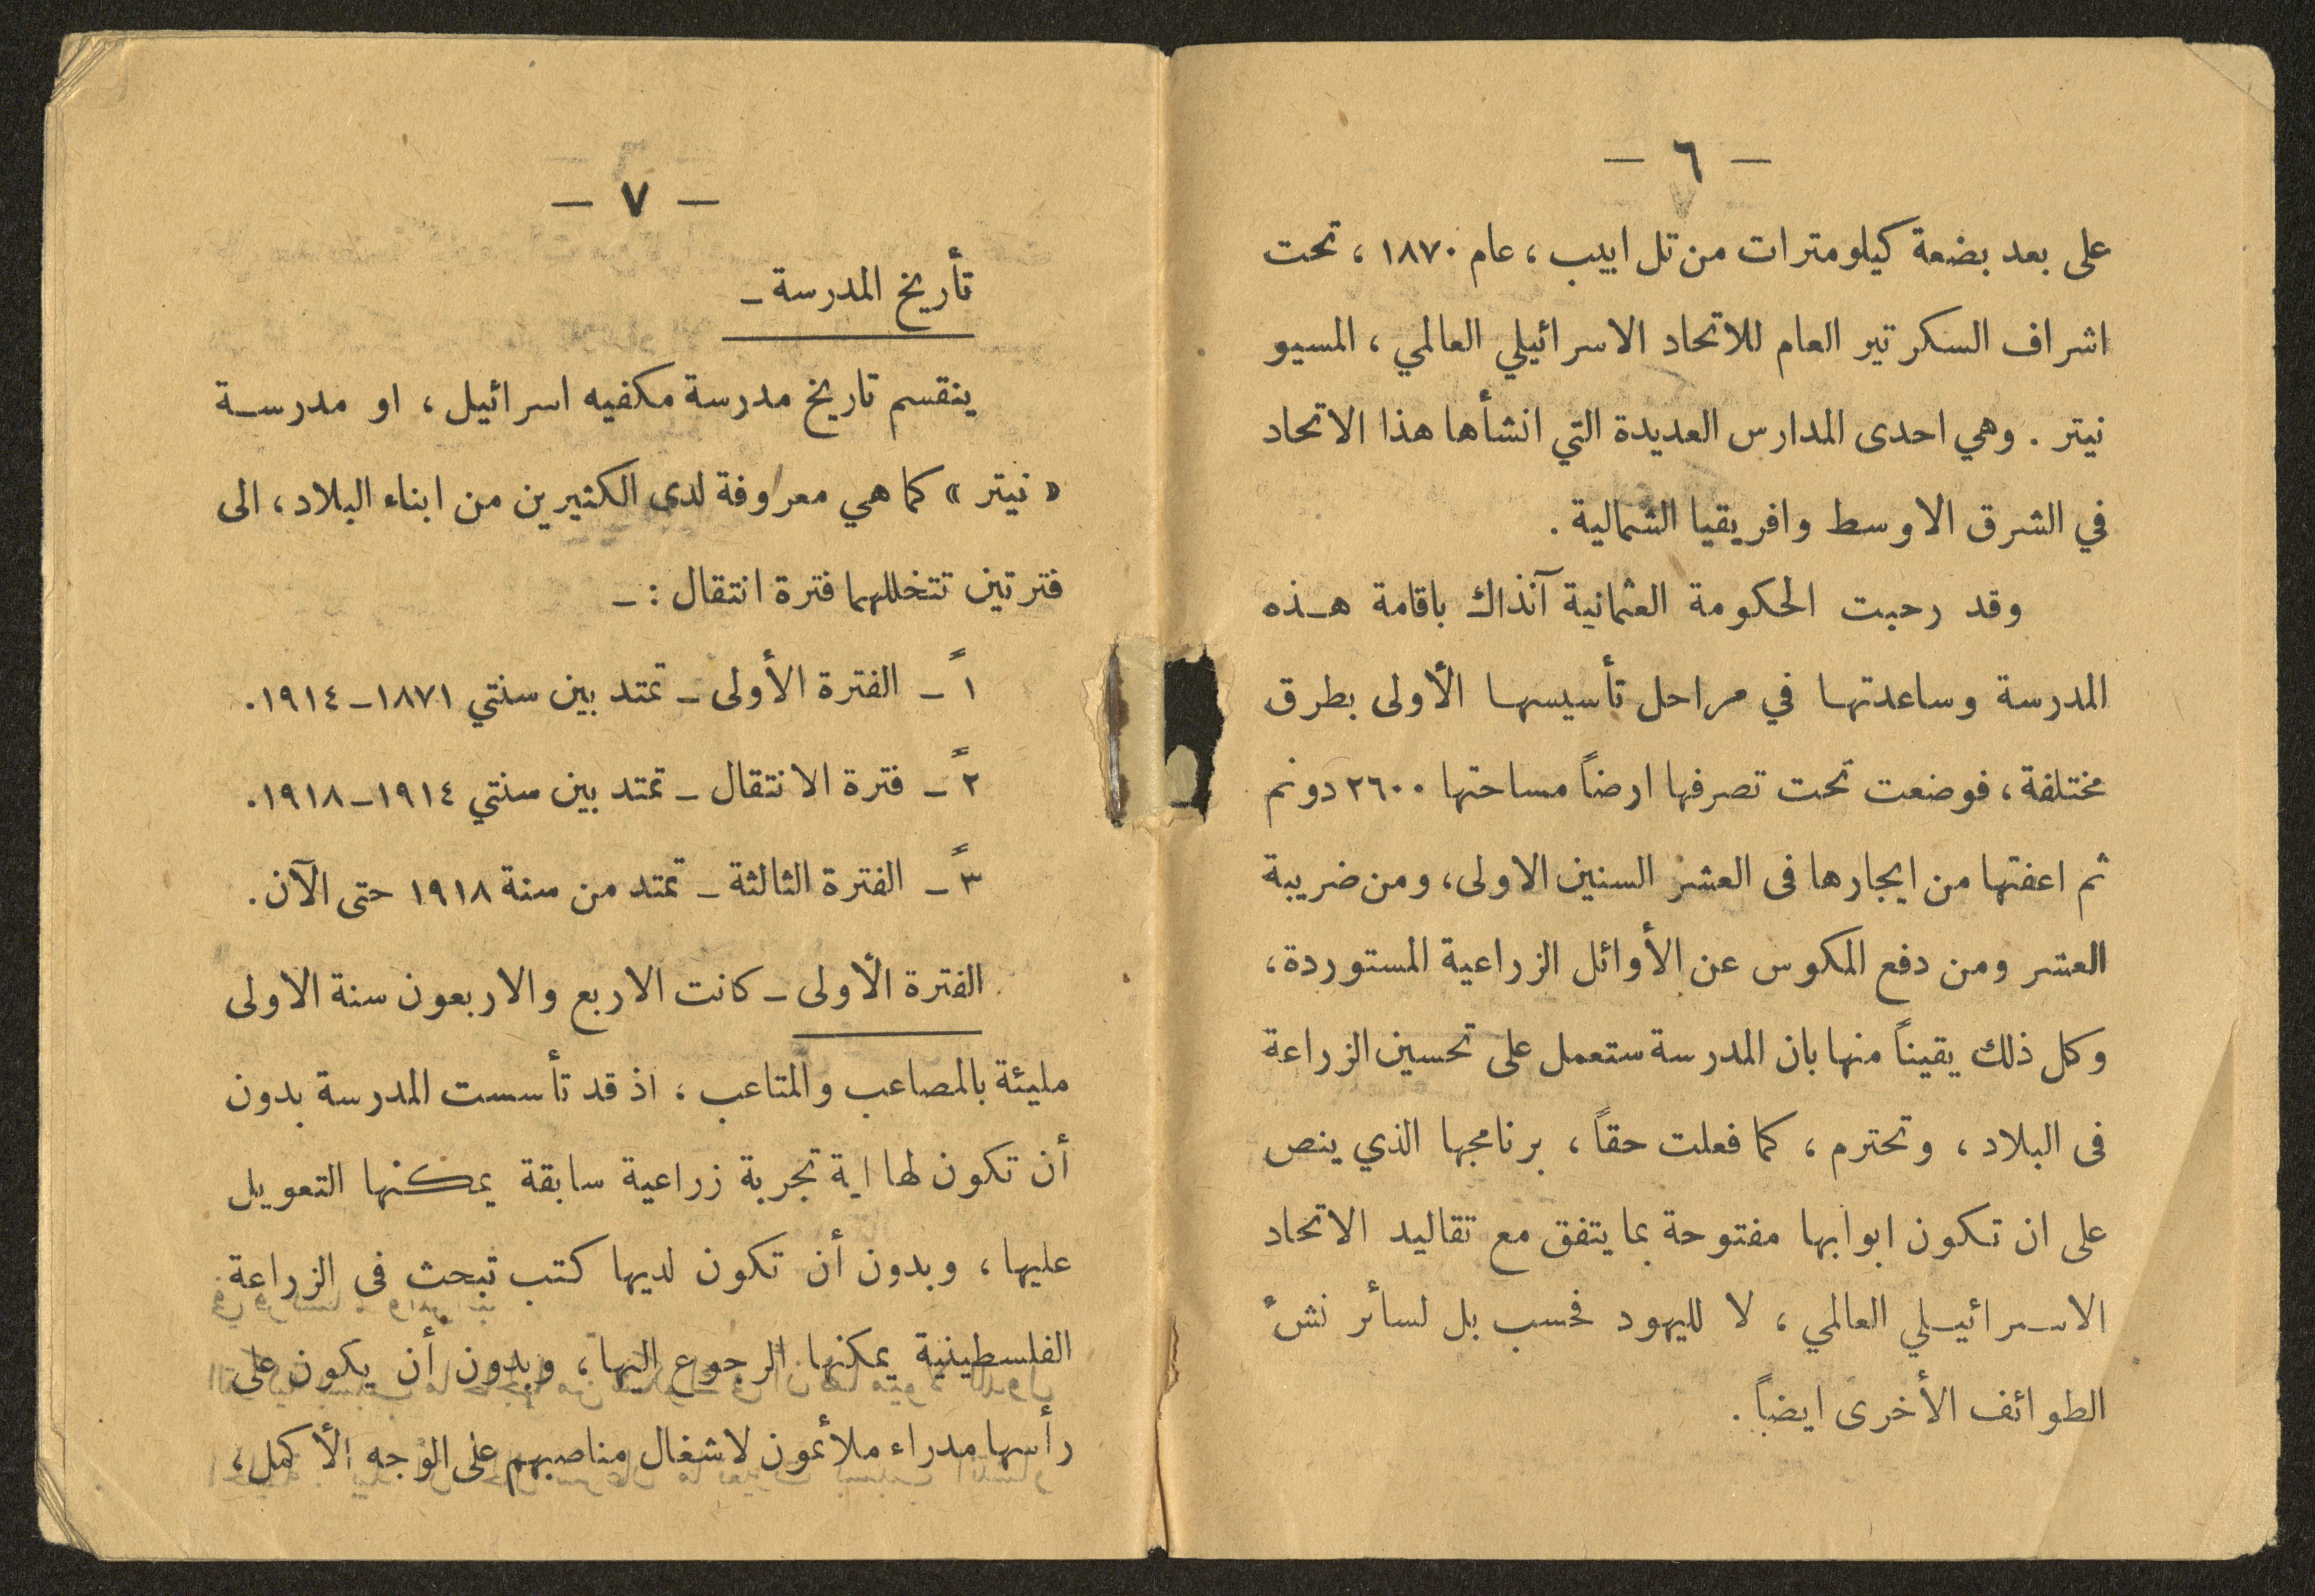 — ٦ —
على بعد بضعة كيلومترات من تل ابيب ، عام ١٨٧٠ ، تحت
اشراف السكرتير العام للاتحاد الاسرائيلي العالمي ، المسيو
نيتر . وهي احدى المدارس العديدة التي انشأها هذا الاتحاد
في الشرق الاوسط وافريقيا الشمالية .
وقد رحبت الحكومة العثمانية آنذاك باقامة هـذه
المدرسة وساعدتها في مراحل تأسيسها الأولى بطرق
مختلفة ، فوضعت تحت تصرفها ارضاً مساحتها ٢٦٠٠ دونم
ثم اعفتها من ايجارها فى العشر السنين الاولى، ومن ضريبة
العشر ومن دفع المكوس عن الأوائل الزراعية المستوردة ،
وكل ذلك يقيناً منها بان المدرسة ستعمل على تحسين الزراعة
فى البلاد ، وتحترم ، كما فعلت حقاً ، برنامجها الذي ينص
على ان تكون ابوابها مفتوحة بما يتفق مع تقاليد الاتحاد
الاسـرائيـلي العالمي ، لا لليهود فحسب بل لسأئر نشء
الطوائف الأخرى ايضاً .
— ٧ —
تأريخ المدرسة ـ
ينقسم تاريخ مدرسة مكفيه اسرائيل ، او مدرسـة
« نيتر » كما هي معروفة لدى الكثيرين من ابناء البلاد ، الى
فترتين تتخللهما فترة انتقال : ـ
١ً ـ الفترة الأولى ـ تمتد بين سنتي ١٨٧١ـ١٩١٤.
٢ً ـ فترة الانتقال ـ تمتد بين سنتي ١٩١٤ـ١٩١٨.
٣ً ـ الفترة الثالثة ـ تمتد من سنة ١٩١٨ حتى الآن .
الفترة الأولى ـ كانت الاربع والاربعون سنة الاولى
مليئة بالمصاعب والمتاعب ، اذ قد تأسست المدرسة بدون
أن تكون لها اية تجربة زراعية سابقة يمكنها التعويل
عليها ، وبدون أن تكون لديها كتب تبحث فى الزراعة
الفلسطينية يمكنها الرجوع اليها ، وبدون أن يكون على
رأسها مدراء ملائمون لاشغال مناصبهم على الوجه الأكمل ،